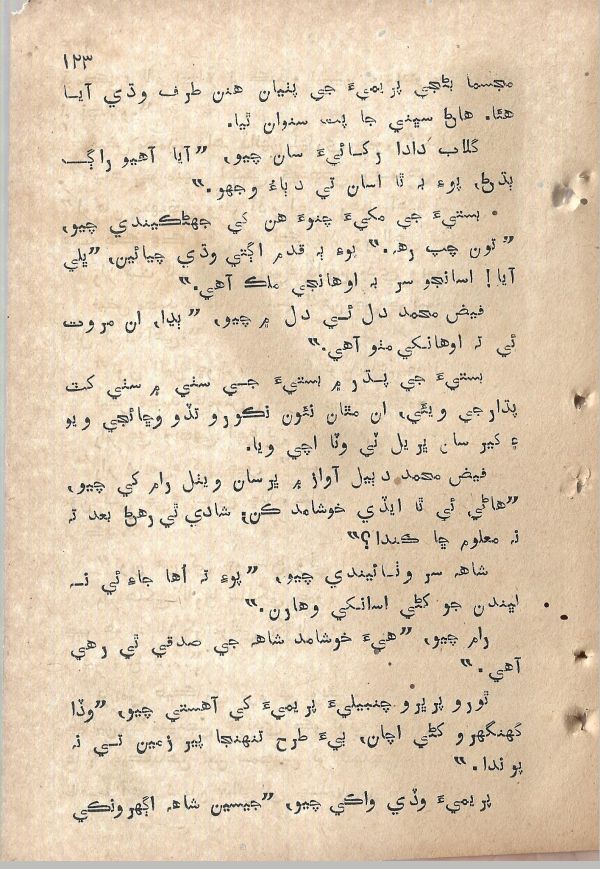 ١٢٣
مجسما بڻجي پريميءَ جي پٺيان هنن طرف وڌي آيا
هئا. هاڻ سڀني جا پٽ سنوان ٿيا.
گلاب دادا رکائيءَ سان چيو، ”آيا آهيو راڳ
ٻڌڻ، پوءِ به ٿا اسان تي دٻاءُ وجهو.“
بستيءَ جي مکيءَ چنوءَ هن کي جهڻڪيندي چيو،
”تون چپ رهه.“ پوءِ ٻه قدم اڳتي وڌي چيائين، ”ڀلي
آيا! اسانجو سر به اوهانجي ملڪ آهي.“
فيض محمد دل ئي دل ۾ چيو، ”ٻڍا، ان مروت
ئي ته اوهانکي مٺو آهي.“
بستيءَ جي پڌر ۾ بستيءَ جي سڀني ۾ سٺي کٽ
پڌارجي ويئي، ان مٿان نئون نڪورو تڏو وڇائجي ويو
۽ کير سان ڀريل ٽي وٽا اچي ويا.
فيض محمد دٻيل آواز ۾ ڀرسان ويٺل رام کي چيو،
”هاڻي ئي ٿا ايڏي خوشامد ڪن، شادي ٿي رهڻ بعد ته
نه معلوم ڇا ڪندا؟“
شاهه سر ونائيندي چيو، ”پوءِ ته اُها جاءِ ئي نه
لڀندن جو کڻي اسانکي وهارن.“
رام چيو، ”هيءَ خوشامد شاهه جي صدقي ٿي رهي
آهي.“
ٿورو پريرو چنبيليءَ پريميءَ کي آهستي چيو، ”وڏا
گهنگهرو کڻي اچان، ٻيءَ طرح تنهنجا پير زمين تي نه
پوندا.“
پريميءَ وڏي واڪي چيو، ”جيسين شاهه اڳهرونکي